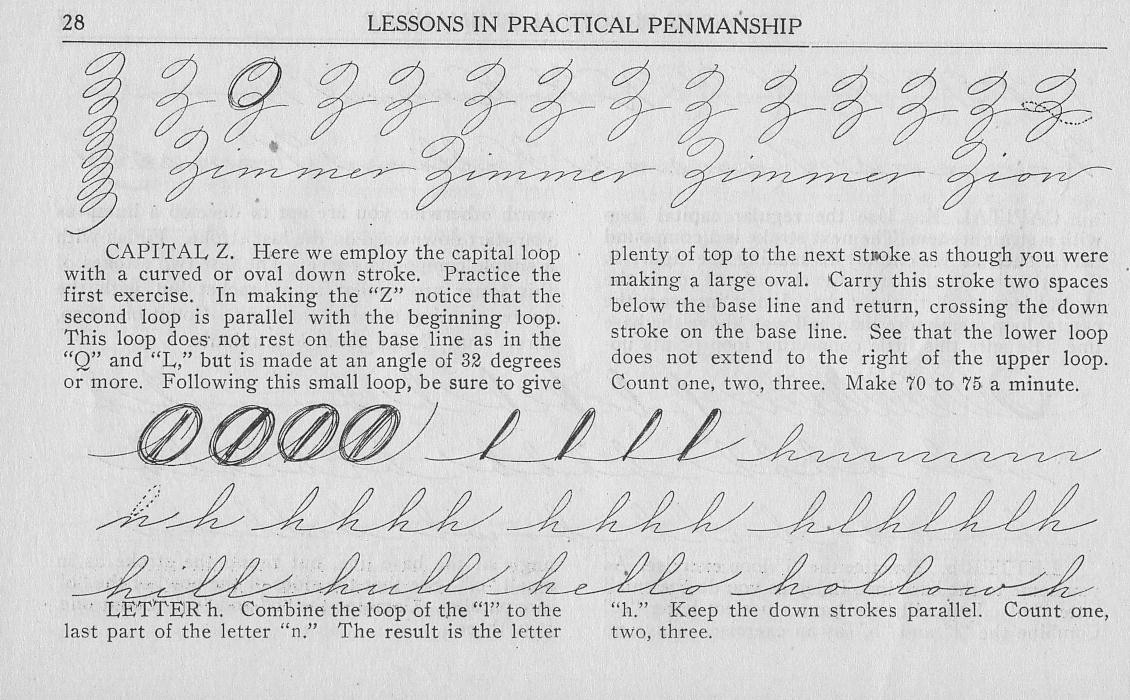 28
LESSONS IN PRACTICAL PENMANSHIP
Z Z Z Z Z Z Z Z Z Z Z Z Z
Zimmer Zimmer Zimmer Zion
CAPITAL Z. Here we employ the capital loop
with a curved or oval down stroke. Practice the
first exercise. In making the “Z” notice that the
second loop is parallel with the beginning loop.
This loop does not rest on the base line as in the
“Q” and “L,” but is made at an angle of 32 degrees
or more. Following this small loop, be sure to give
plenty of top to the next stroke as though you were
making a large oval. Carry this stroke two spaces
below the base line and return, crossing the down
stroke on the base line. See that the lower loop
does not extend to the right of the upper loop.
Count one, two, three. Make 70 to 75 a minute.
h h h h h h h h h h h l h l h l h
hill hull hello hollow h
LETTER h. Combine the loop of the “l” to the
last part of the letter “n.” The result is the letter
“h.” Keep the down strokes parallel. Count one,
two, three.